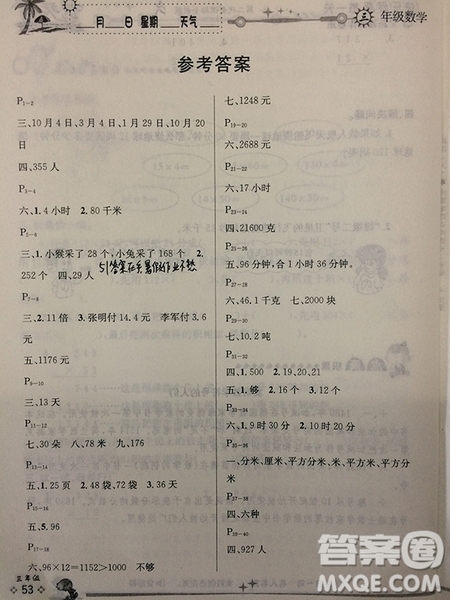 月 日 星期 天气
三 年级数学
参考答案
P1-2
三、10 月 4 日、3 月 4 日、1 月 29 日、10 月 20
日
四、355 人
P3-4
六、1. 4 小时 2. 80 千米
P5-6
三、1. 小猴采了 28 个,小兔采了 168 个 2.
252 个 四、29 人
P7-8
三、2. 11 倍 3. 张明付 14.4 元 李军付 3.6
元
五、1176 元
P9-10
三、13 天
P11-12
七、30 朵 八、78 米 九、176
P13-14
五、1. 25 页 2. 48 袋,72 袋 3. 36 天
P15-16
五、5. 96
P17-18
六、96×12=1152>1000 不够
三年级
53
七、1248 元
P19-20
六、2688 元
P21-22
六、17 小时
P23-24
四、21600 克
P25-26
五、96 分钟,合 1 小时 36 分钟。
P27-28
六、46.1 千克 七、2000 块
P29-30
九、2.0 吨
P31-32
四、1. 500 2. 19,20,21
P33-34
五、1. 够 2. 16 个 3. 12 个
P35-36
六、1. 9 时 30 分 2. 8 时 30 分
P37-38
一、分米、厘米、平方分米、米、平方米、平方分
米
P39-40
四、六种
P41-42
四、927 人
答案圈
MXQE.COM